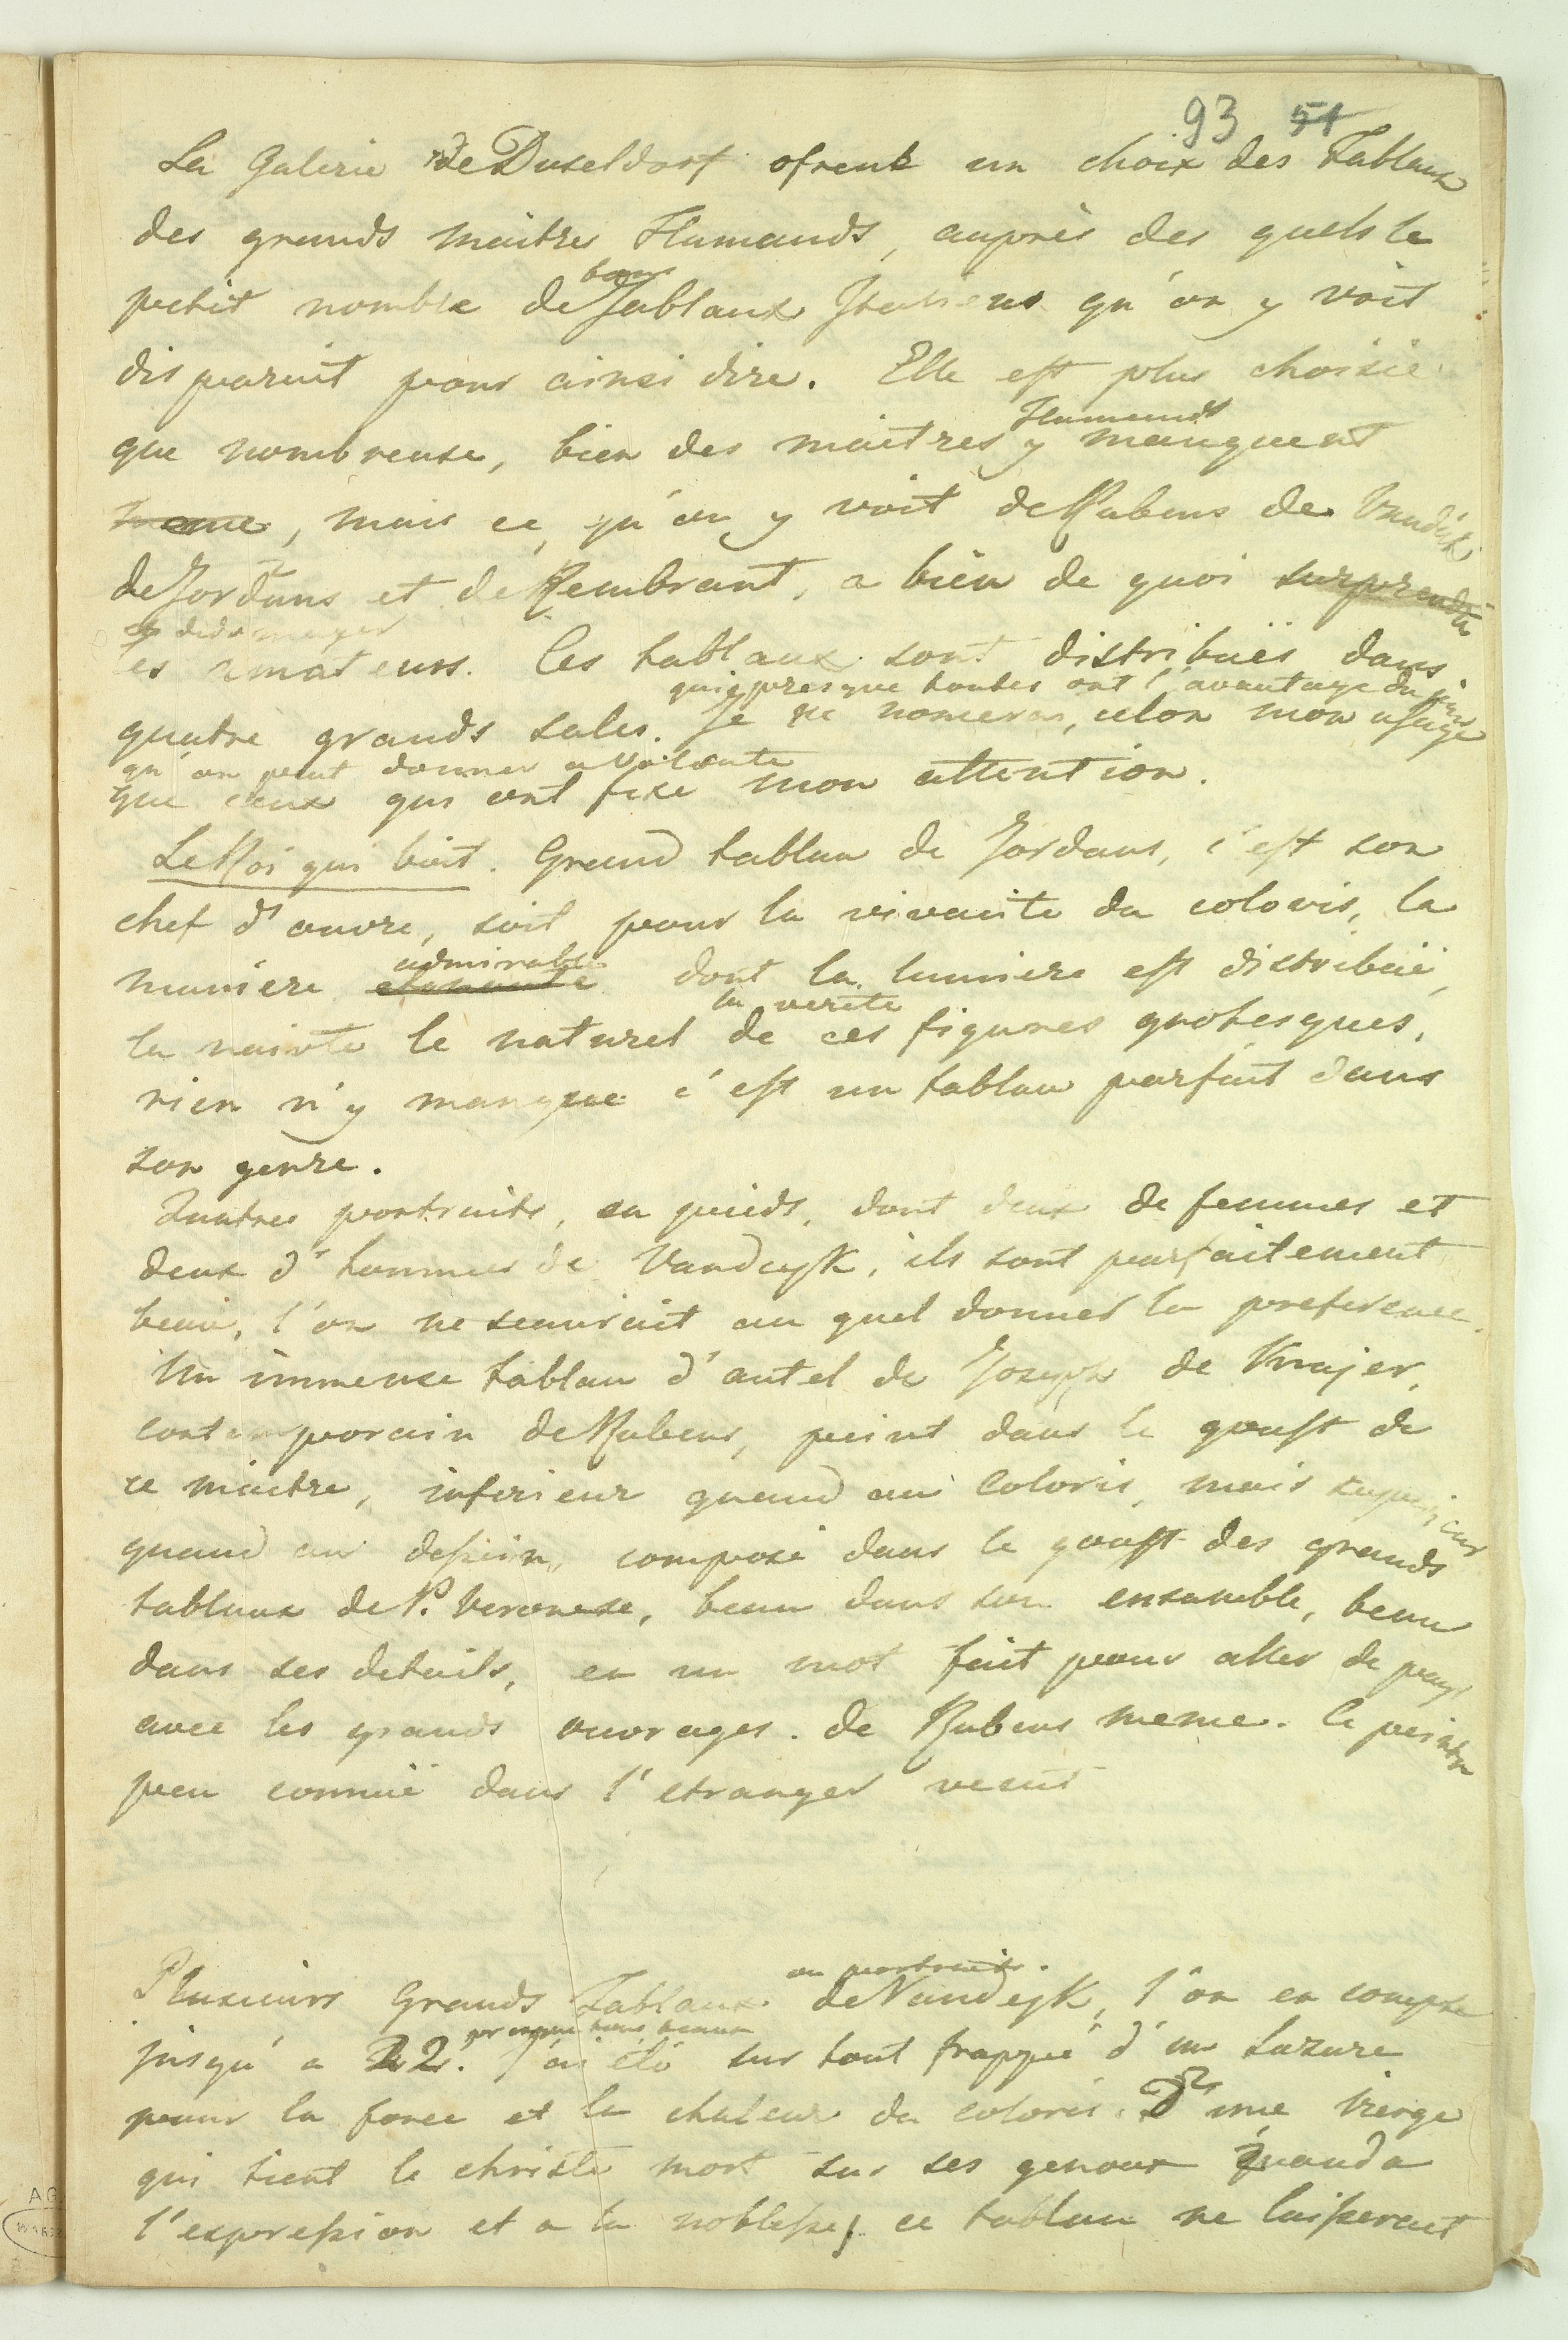 93 51
La Galerie de Duseldorf ofrent un choix des Tablaux
des grands maitres Flamands, auprès des quels le
bons
petit nombre de Tablaux Italiens qu'on y voit
disparait pour ainsi dire. Elle est plus choisie
Flamands
que nombreuse, bien des maitres y manquent
meme, mais ce qu'on y voit de Rubens de Vandik
de Jordans et de Rembrant, a bien de quoi surprendre
dedomager
les amateurs. Ces tablaux sont distribuës dans
qui presque toutes ont l'avantage du jour
quatre grands sales. Je ne nomerai, celon mon usage
qu'on peut donner a volonte
que ceux qui ont fixe mon attention.
Le Roi qui boit. Grand tablau de Jordans, c'est son
chef d'œuvre, soit pour la vivacite du coloris, la
admirable
maniere etonante dont la lumiere est distribuë,
la verite
la naivte le naturel de ces figures grotesques,
rien n'y manque c'est un tablau parfait dans
son genre.
Quatres portraits, en pieds, dont deux de femmes et
deux d'hommes de Vandeyk, ils sont parfaitement
beau, l'on ne scauroit au quel donner la preference.
Un immense tablau d'autel de Joseph de Krajer,
contemporain de Rubens, peint dans le goust de
ce maitre, inferieur quand au Coloris, mais superieur
quand au dessein, composé dans le goust des grands
tablaux de P. Veronese, beau dans son ensamble, beau
dans ses details, en un mot fait pour aller de pair
avec les grands ouvrages de Rubens meme. Ce peintre
peu connuë dans l'etranger vecut
ou portraits.
Plusieurs Grands Tablaux de Vandeyk, l'on en compte
presque tous beaux
jusqu'a 22. J'ai été sur tout frappé d'un Lazare
pour la force et la chaleur du coloris. D'une Vierge
qui tient le christe mort sur ses genoux quand a
l'expression et a la noblesse, ce tablau ne laisseroit